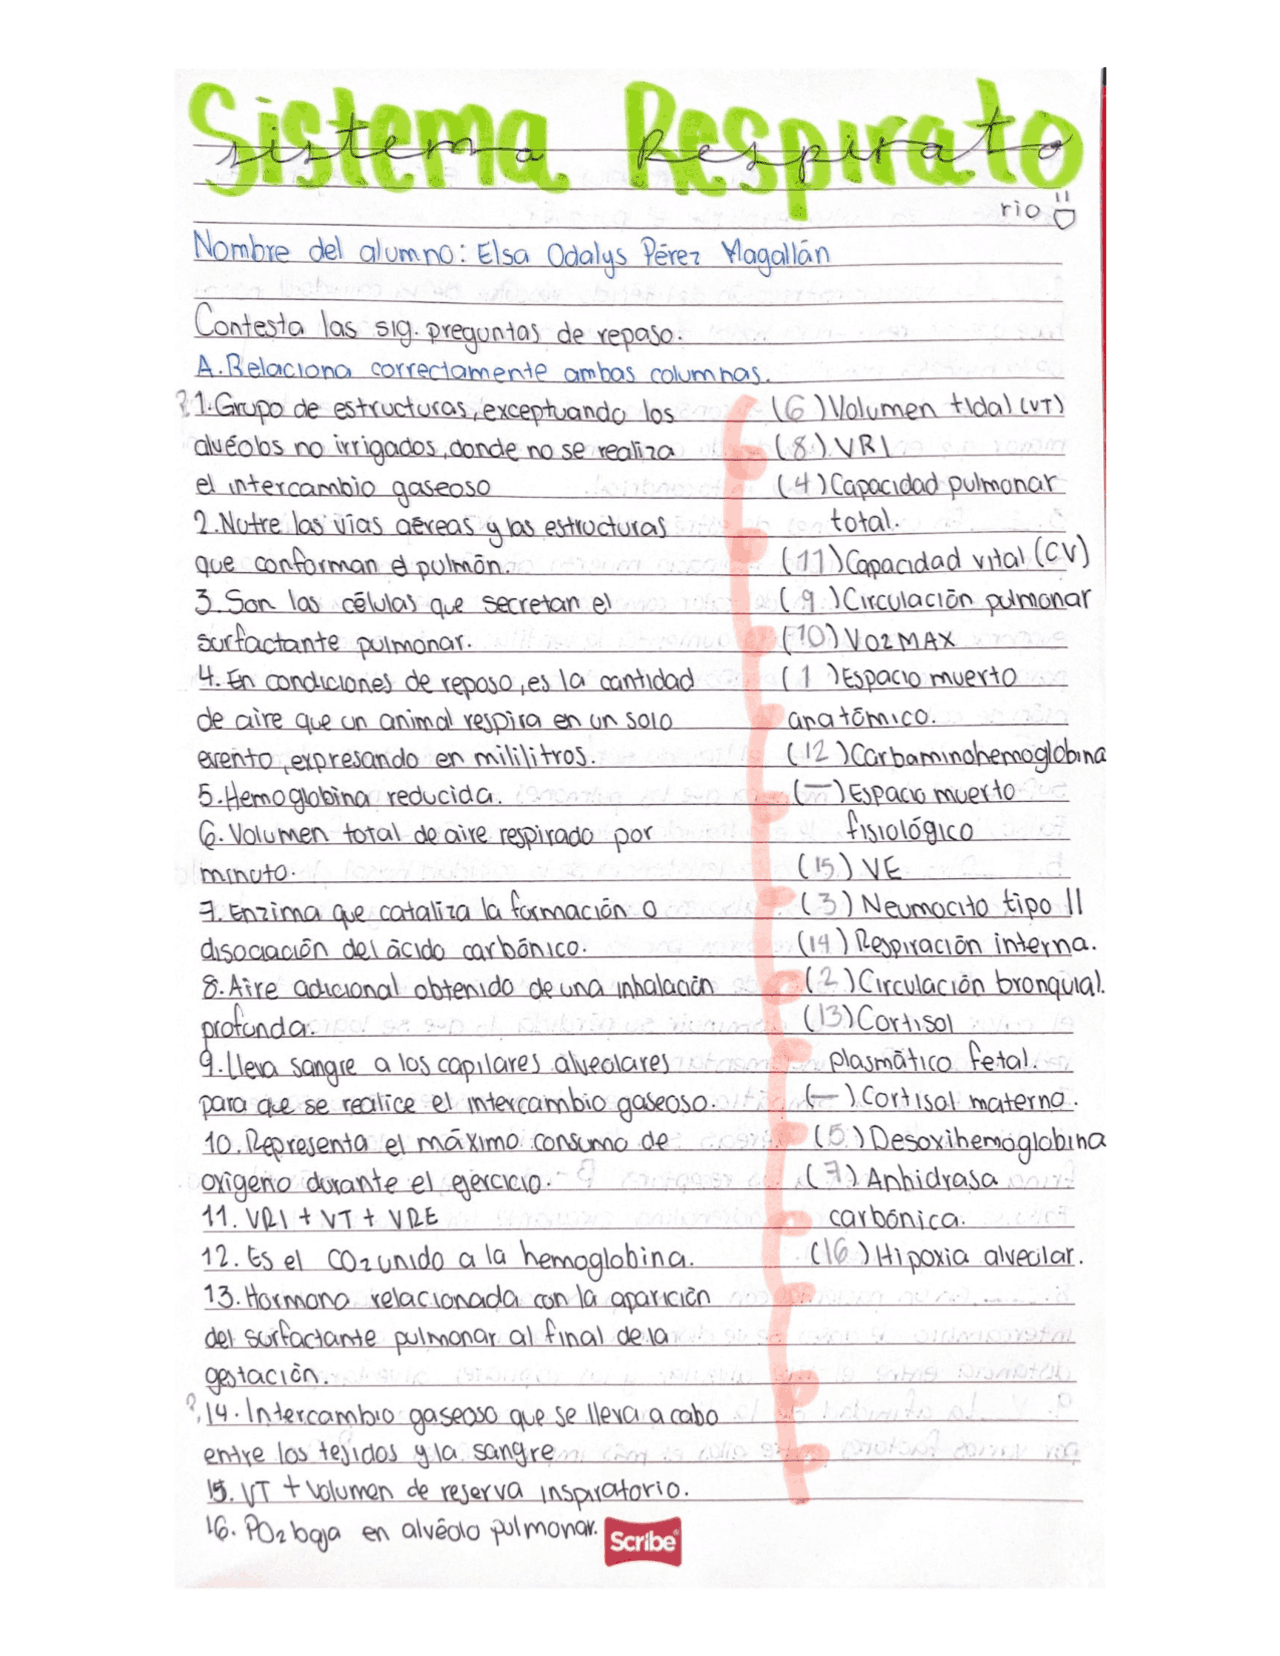 Sistema Respirato
rio
Nombre del alumno: Elsa Odalys Pérez Magallán
Contesta las sig. preguntas de repaso.
A. Relaciona correctamente ambas columnas.
?1. Grupo de estructuras, exceptuando los
alvéolos no irrigados, donde no se realiza
el intercambio gaseoso
2. Nutre las vías aéreas y las estructuras
que conforman el pulmón.
3. Son las células que secretan el
surfactante pulmonar.
4. En condiciones de reposo, es la cantidad
de aire que un animal respira en un solo
evento, expresando en mililitros.
5. Hemoglobina reducida.
6. Volumen total de aire respirado por
minuto.
7. Enzima que cataliza la formación o
disociación del ácido carbónico.
8. Aire adicional obtenido de una inhalación
profunda.
9. Lleva sangre a los capilares alveolares
para que se realice el intercambio gaseoso.
10. Representa el máximo consumo de
oxígeno durante el ejercicio.
11. VRI + VT + VRE
12. Es el CO2 unido a la hemoglobina.
13. Hormona relacionada con la aparición
del surfactante pulmonar al final de la
gestación.
?14. Intercambio gaseoso que se lleva a cabo
entre los tejidos y la sangre
15. VT + Volumen de reserva inspiratorio.
16. PO2 baja en alvéolo pulmonar.
(6) Volumen tidal (VT)
(8) VRI
(4) Capacidad pulmonar
total.
(11) Capacidad vital (CV)
(9) Circulación pulmonar
(10) VO2MAX
(1) Espacio muerto
anatómico.
(12) Carbaminohemoglobina
(—) Espacio muerto
fisiológico
(15) VE
(3) Neumocito tipo II
(14) Respiración interna.
(2) Circulación bronquial.
(13) Cortisol
plasmático fetal.
(—) Cortisol materno.
(5) Desoxihemoglobina
(7) Anhidrasa
carbónica.
(16) Hipoxia alveolar.
Scribe